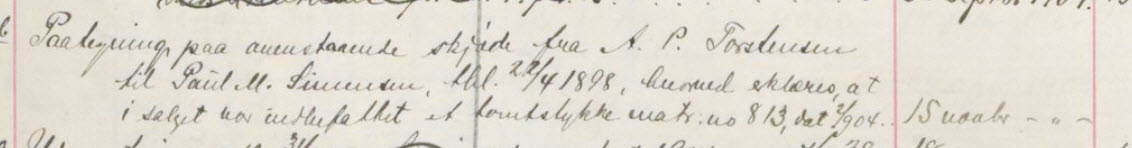 Paategning paa ovenstaaende skjøde fra A. P. Torstensen
til Paul M. Simensen, tbl. 22/4 1898, hvorved erklæres, at
i salget var indbefattet et tomtstykke matr. no 813, dat 3/904. 15 novbr - " -